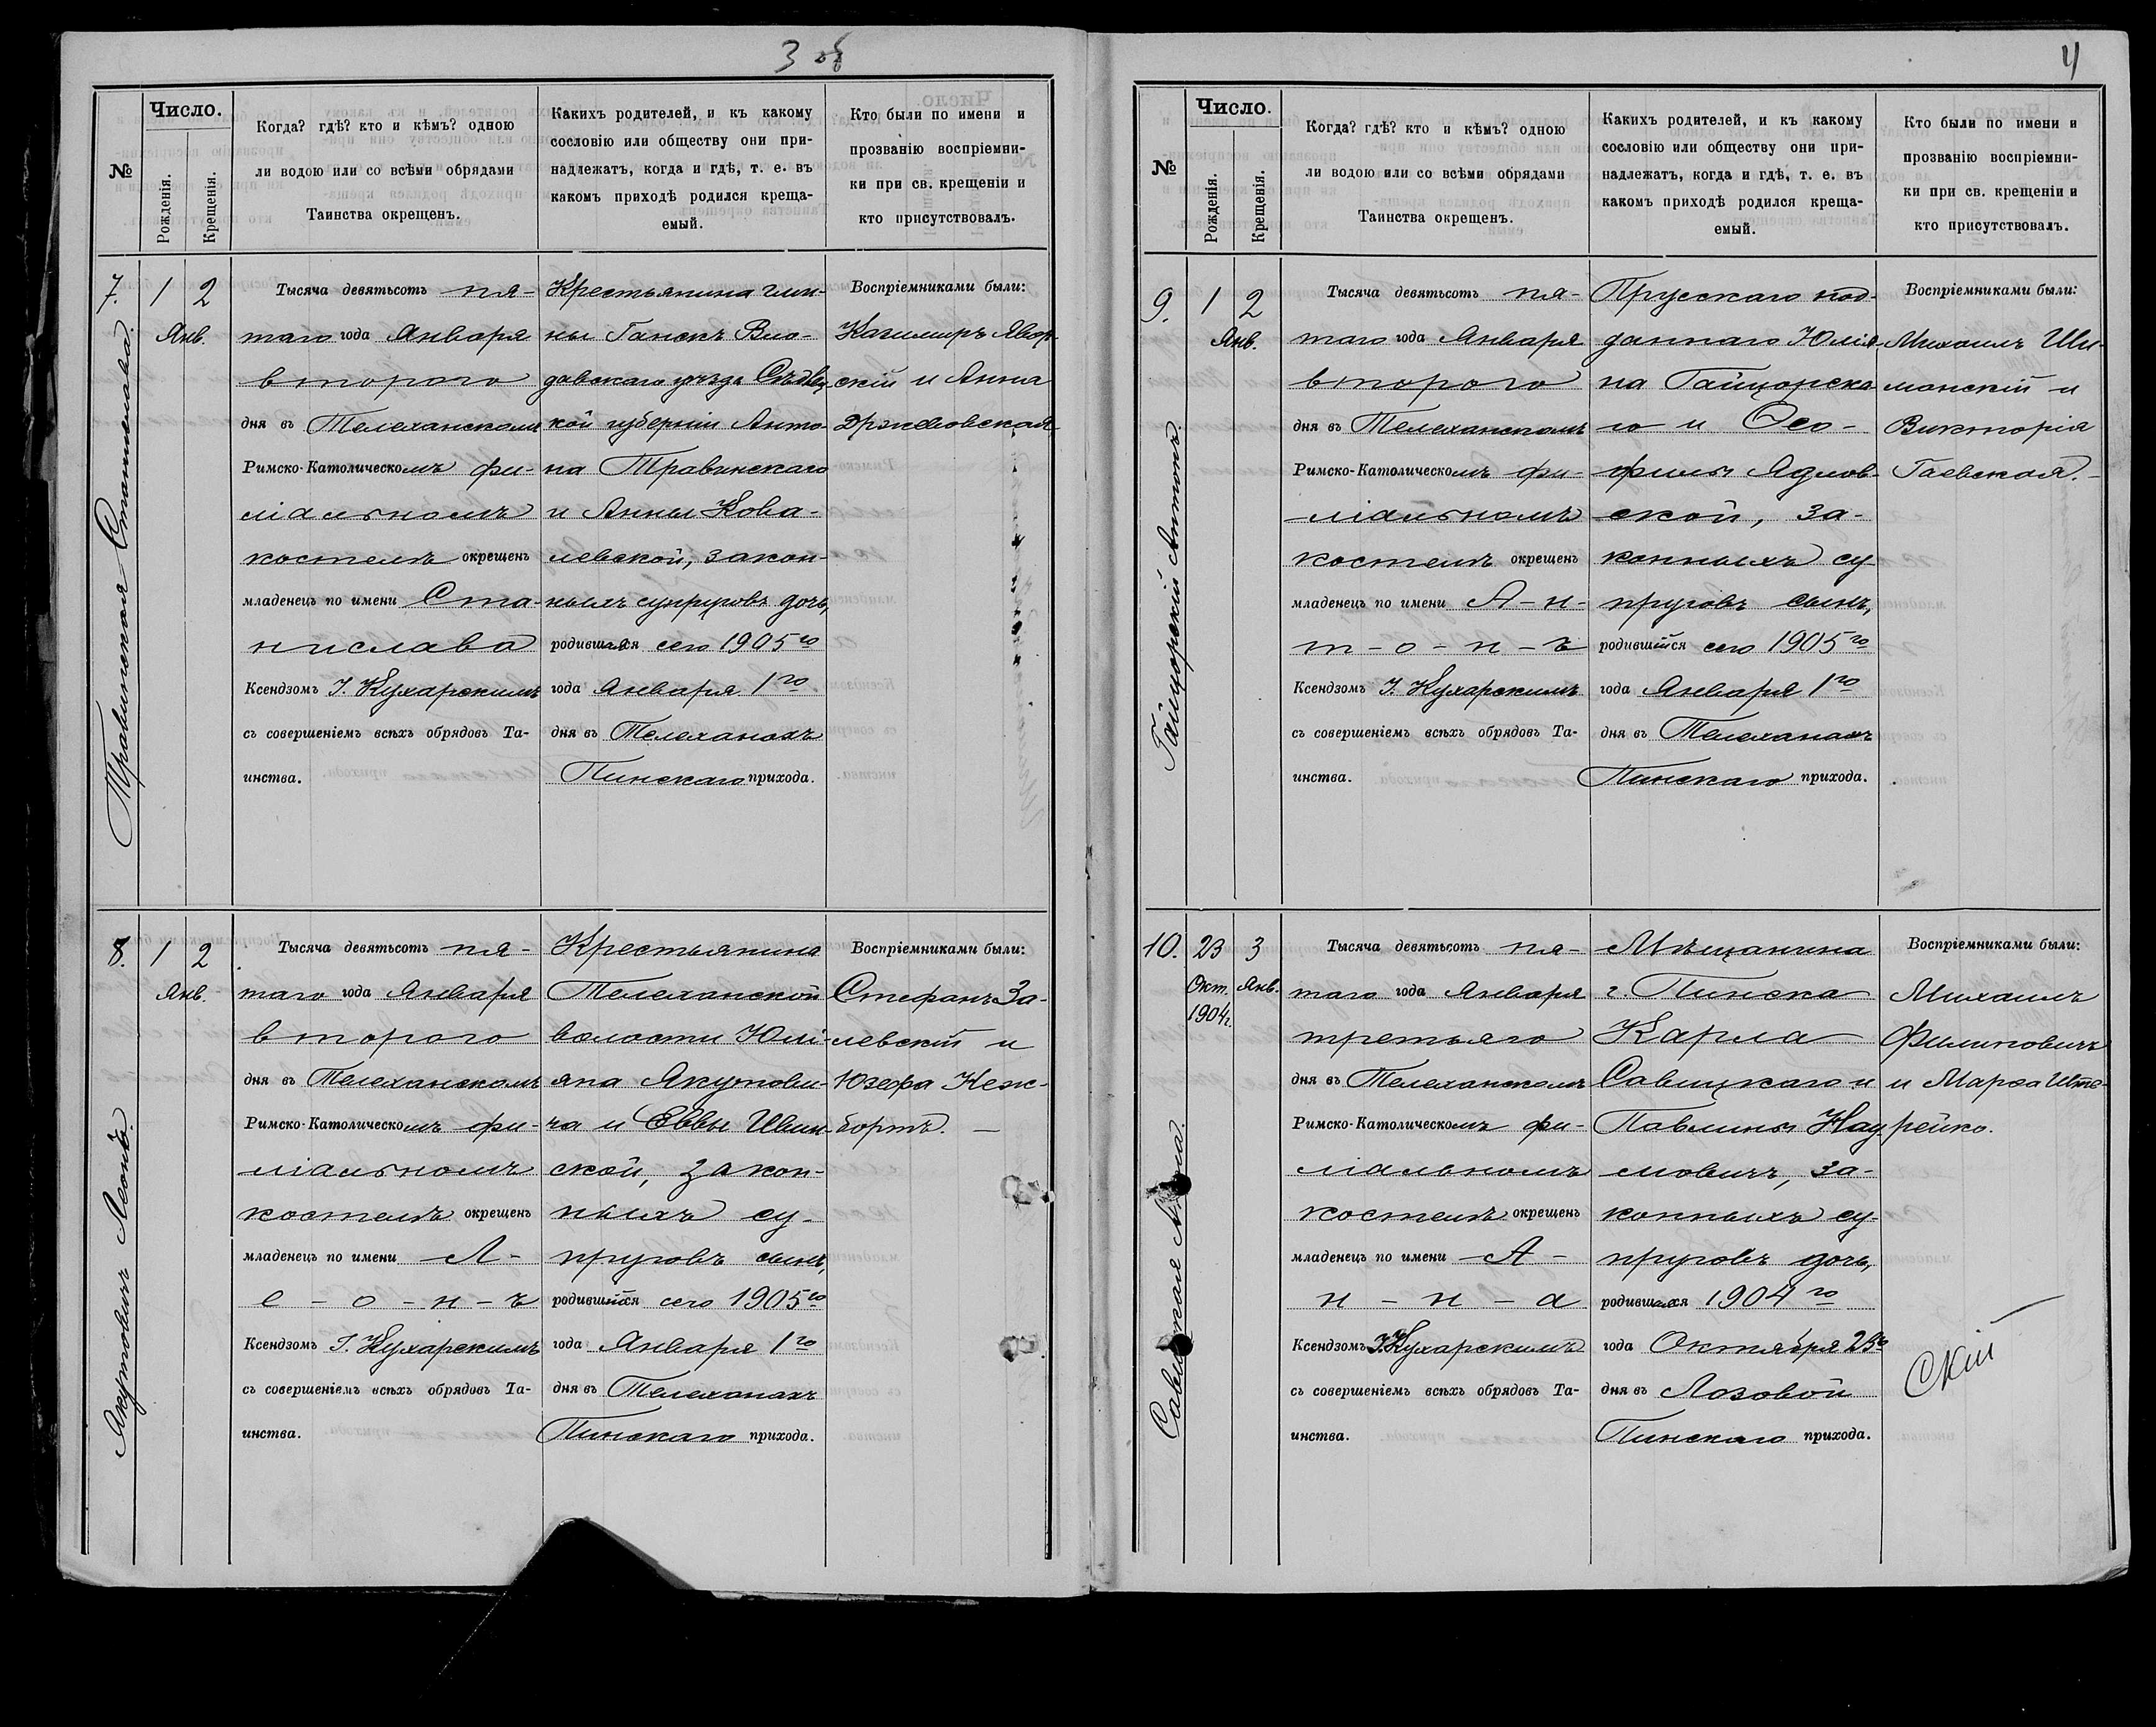 3 об
№
Число.
Рожденія.
Крещенія.
Когда? гдѣ? кто и кѣмъ? одною
ли водою или со всѣми обрядами
Таинства окрещенъ.
Какихъ родителей, и къ какому
сословію или обществу они при-
надлежатъ, когда и гдѣ, т. е. въ
какомъ приходѣ родился креща-
емый.
Кто были по имени и
прозванію воспріемни-
ки при св. крещеніи и
кто присутствовалъ.
7.
Травинская Станислава.
1 2
Янв.
Тысяча девятьсотъ пя-
таго года Января
второго
дня въ Телеханскомъ
Римско-Католическомъ фи-
ліальномъ
костелѣ окрещенъ
младенецъ по имени Ста-
нислава
Ксендзомъ І. Кухарскимъ
съ совершеніемъ всѣхъ обрядовъ Та-
инства.
Крестьянина гми-
ны Ганскъ Вло-
давскаго уѣзда Сѣдлец-
кой губерніи Анто-
на Травинскаго
и Анны Кова-
левской, закон-
ныхъ супруговъ дочь,
родившаяся сего 1905го
года Января 1го
дня въ Телеханахъ
Пинскаго прихода.
Воспріемниками были:
Казимиръ Явор-
скій и Анна
Држевовская
8.
Якутовичъ Леонъ.
1 2
Янв.
Тысяча девятьсотъ пя-
таго года Января
второго
дня въ Телеханскомъ
Римско-Католическомъ фи-
ліальномъ
костелѣ окрещенъ
младенецъ по имени Л-
е - о - н - ъ
Ксендзомъ І. Кухарскимъ
съ совершеніемъ всѣхъ обрядовъ Та-
инства.
Крестьянина
Телеханской
волости Юлі-
яна Якутови-
ча и Еввы Ивин-
ской, закон-
ныхъ су-
пруговъ сынъ,
родившійся сего 1905го
года Января 1го
дня въ Телеханахъ
Пинскаго прихода.
Воспріемниками были:
Стефанъ За-
левскій и
Юзефа Неж-
бортъ. —
4
№
Число.
Рожденія.
Крещенія.
Когда? гдѣ? кто и кѣмъ? одною
ли водою или со всѣми обрядами
Таинства окрещенъ.
Какихъ родителей, и къ какому
сословію или обществу они при-
надлежатъ, когда и гдѣ, т. е. въ
какомъ приходѣ родился креща-
емый.
Кто были по имени и
прозванію воспріемни-
ки при св. крещеніи и
кто присутствовалъ.
9.
Гайцорскій Антонъ.
1 2
Янв.
Тысяча девятьсотъ пя-
таго года Января
второго
дня въ Телеханскомъ
Римско-Католическомъ фи-
ліальномъ
костелѣ окрещенъ
младенецъ по имени А - н -
т - о - н - ъ
Ксендзомъ І. Кухарскимъ
съ совершеніемъ всѣхъ обрядовъ Та-
инства.
Прусскаго под-
даннаго Юлія-
на Гайцорска
го и Өео-
филы Адмов-
ской, за-
конныхъ су-
пруговъ сынъ,
родившійся сего 1905го
года Января 1го
дня въ Телеханахъ
Пинскаго прихода.
Воспріемниками были:
Михаилъ Ши-
манскій и
Викторія
Гаевская. -
10.
Савицкая Анна.
23 3
Окт. Янв.
1904г.
Тысяча девятьсотъ пя-
таго года Января
третьяго
дня въ Телеханскомъ
Римско-Католическомъ фи-
ліальномъ
костелѣ окрещенъ
младенецъ по имени А -
н - н - а
Ксендзомъ І. Кухарскимъ
съ совершеніемъ всѣхъ обрядовъ Та-
инства.
Мѣщанина
г. Пинска
Карла
Савицкаго и
Павлины Нау-
мовичъ, за-
конныхъ су-
пруговъ дочь,
родившаяся 1904го
года Октября 23го
дня въ Лозовой
Пинскаго прихода.
Воспріемниками были:
Михаилъ
Филиповичъ
и Марѳа Ште-
рейко.
скій